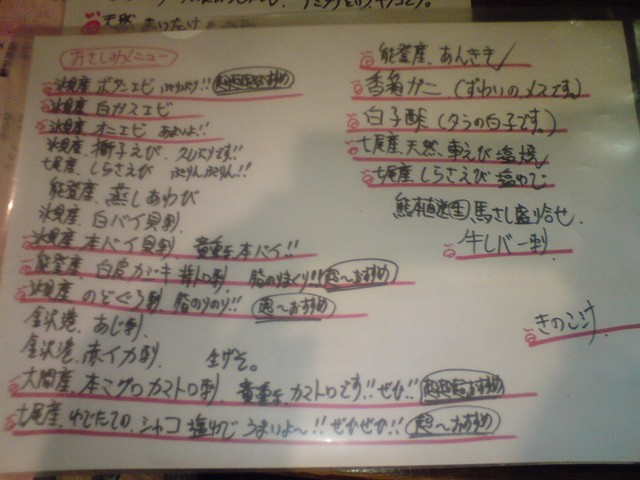 天然
おさしみメニュー
氷見産 ボタンエビ ぷりぷり!! 超超超おすすめ
氷見産 白ガスエビ
氷見産 オニエビ あまいよ!!
氷見産 獅子えび 久しぶりです!!
七尾産 しらさえび ぷりんぷりん!!
能登産 蒸しあわび
氷見産 白バイ貝刺
氷見産 本バイ貝刺 貴重 本バイ!!
能登産 白皮カジキ 背トロ刺 脂のりまくり!! 超〜おすすめ
氷見産 のどぐろ刺 脂のりのり!! 超〜おすすめ
金沢港 あじ刺
金沢港 赤イカ刺 生げそ。
大間産 本マグロカマトロ刺 貴重 カマトロです!!ぜひ!! 超超超おすすめ
七尾産 ゆでたての シャコ 塩ゆで うまいよ〜!! ぜひぜひ!! 超〜おすすめ
能登産 あんきも
香箱ガニ (ずわいのメスです。)
白子酢 (タラの白子です。)
七尾産 天然 車えび 塩焼
七尾産 しらさえび 塩ゆで
熊本直送 馬さし盛り合せ
牛レバー刺
きのこ汁